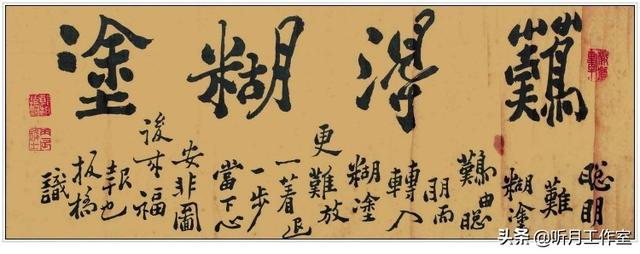 難得糊塗
聰明
難
糊塗
難由聰
明而
轉入
糊塗
更難放
一着退
一步
當下心
安非圖
後来福
報也
板橋
識
头条 @听月工作室